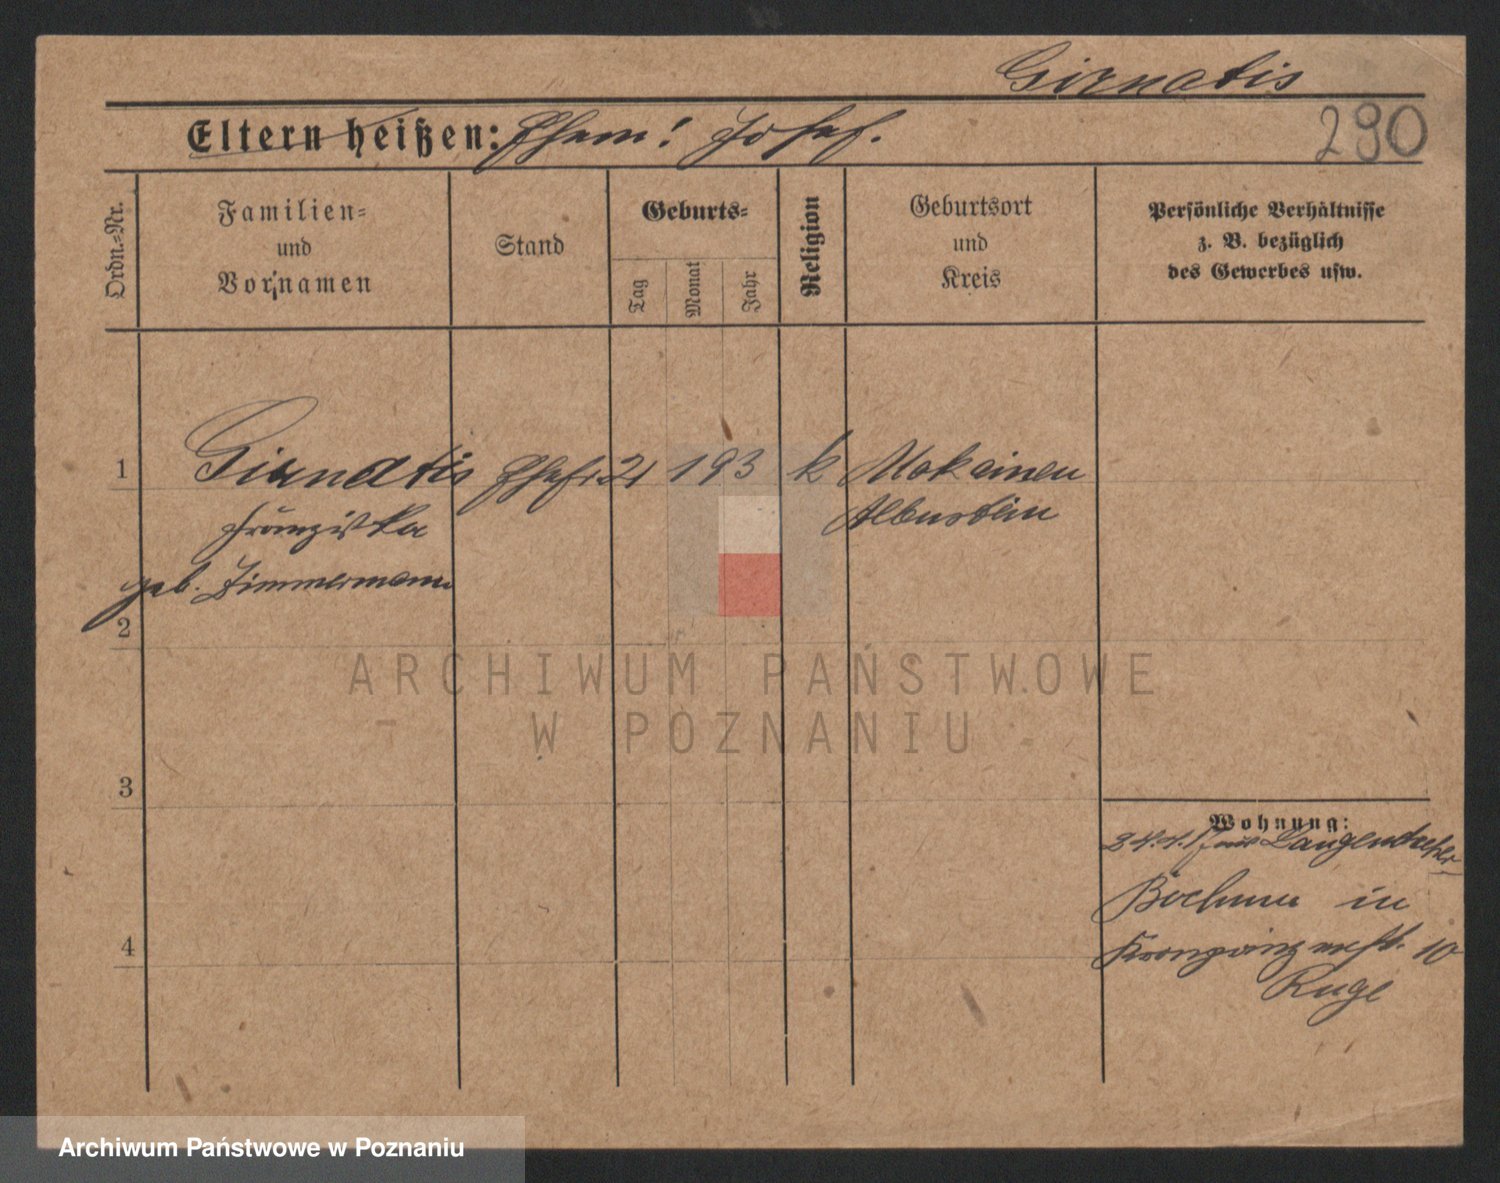 Girnatis
Eltern heißen: Ehem: Josef.
290
Ordn.-Nr.
Familien-
und
Vor-namen
Stand
Geburts-
Tag
Monat
Jahr
Religion
Geburtsort
und
Kreis
Persönliche Verhältnisse
z. B. bezüglich
des Gewerbes usw.
1
Girnatis Ehefr. 21 1 93 k Mokainen
Franziska
Allenstein
geb. Zimmermann
2
ARCHIWUM PAŃSTWOWE
W POZNANIU
3
Wohnung:
aus Langendreer
4
Bochum in
Kronprinzenstr. 10
Ruge
Archiwum Państwowe w Poznaniu